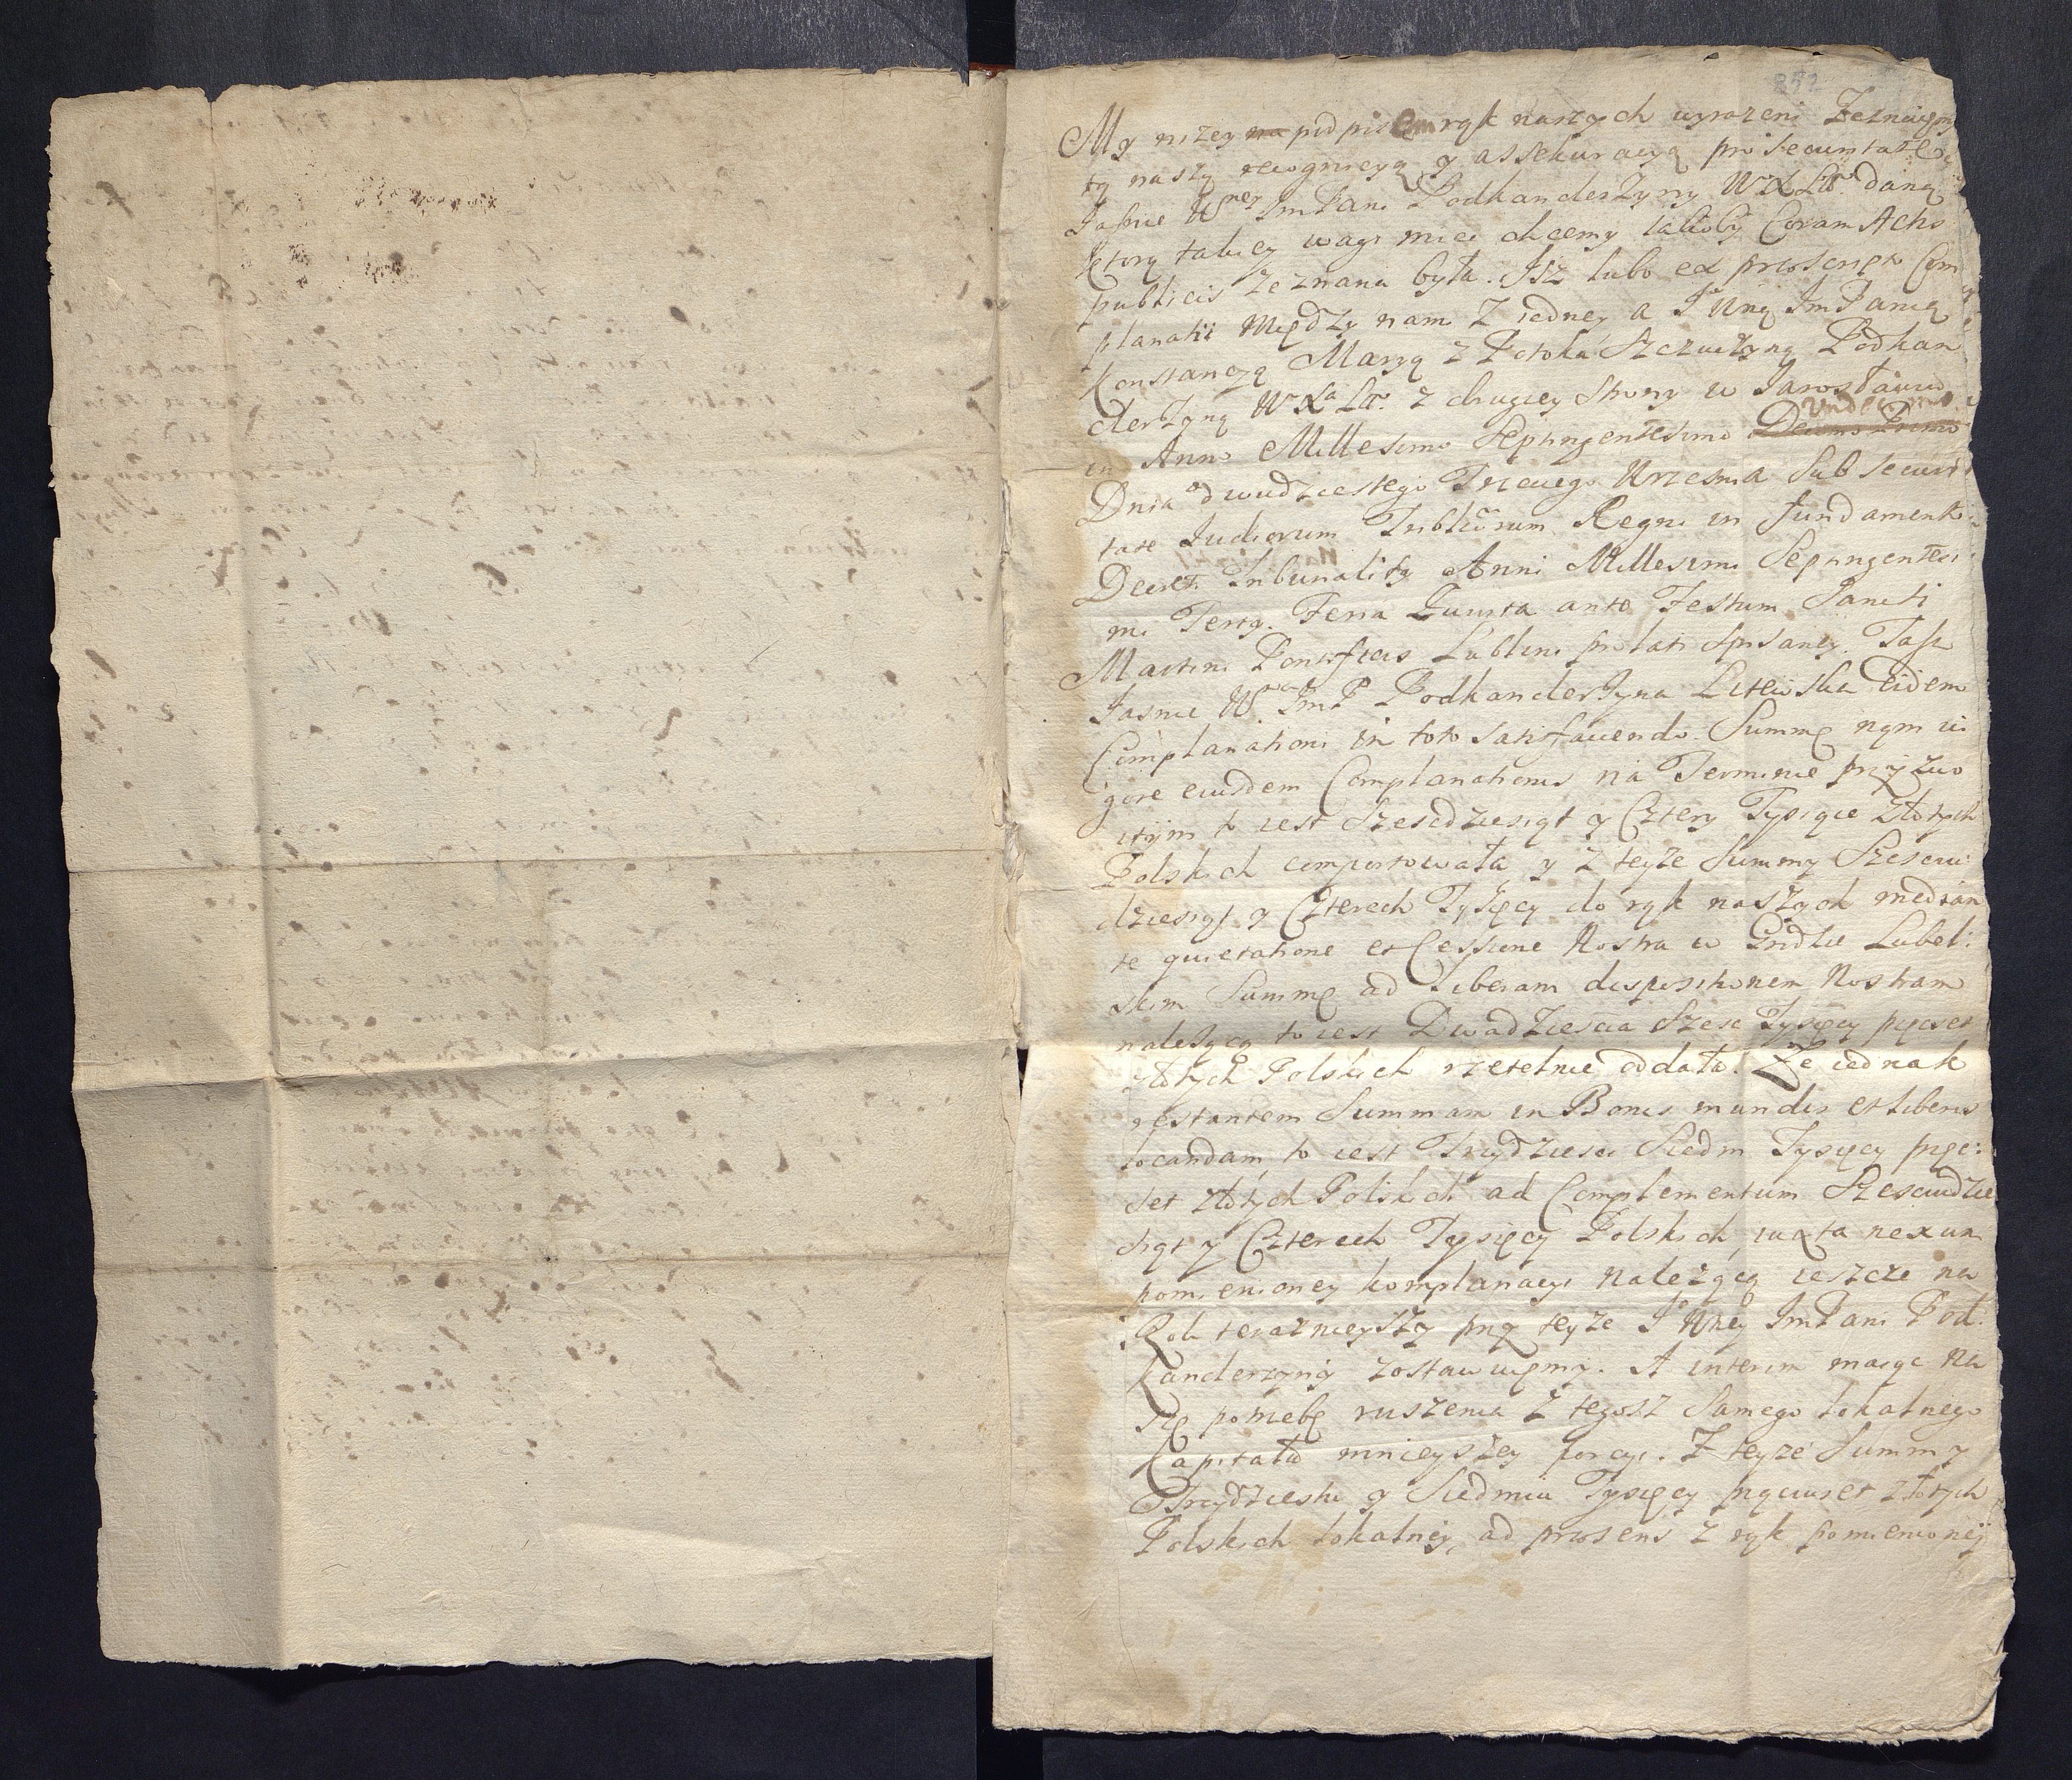 852
My nizey na podpisem rąk naszych wyrazeni Zeznaiemy
tą naszą recognicyą y assekuracyą pro securitate
Jasnie Wney ImPani Podkanclerzyny WXLit. daną
ktorą takiey wagi miec chcemy iakoby Coram Actis
publicis zeznana była. Isz lubo ex proscripto Com
planatii Między nami z iedney a J Wną ImPanią
Konstancyą Maryą z Potoka Szczuczyną Podkan
clerzyną WXa Lit. z drugiey strony w Jarosławiu
Undecimo
in Anno Millesimo Septingentesimo Decimo Primo
Dnia dwudziestego Trzeciego Wrzesnia Sub securi
tate Judiciorum Tribliorum Regni in fundamento
Decreti Tribunality Anni Millesimi Septingentesi
mi Terty. Feria Quarta ante Festum Sancti
Martini Pontificis Lublini prolati spisaney. Tasz
Jasnie Wna ImP Podkanclerzyna Litewska Eidem
Complanationi in toto satisfaciendo. Summę nam vi
gore eiusdem Complanationis na Terminie przyzwo
itym to iest Szescdziesiąt y Cztery Tysiące Złotych
Polskich comportowała y z teyze Summy Szesciu
dziesiąt y Czterech Tysięcy do rąk naszych median
te quietatione et Cessione Nostra w Grodzie Lubel:
skim Summę ad liberam dispositionem Nostram
nalezącą to iest Dwadziescia Szesc Tysięcy pięcset
złotych Polskich rzetelnie oddała. Ze iednak
restantem Summam in Bonis mundis et liberis
locandam to iest Trzydziesci Siedm Tysięcy pięc:
set złotych Polskich ad Complementum Szesciudzie
siąt y Czterech Tysięcy Polskich iuxta nexum
pomienioney komplanacyi Nalezącą ieszcze na
Rok teraznieyszy przy teyze J Wney ImPani Pod:
kanclerzyny zostawuiemy. A interim maiąc na
się potrzebę ruszenia z tegosz samego lokalnego
Capitału mnieyszey porcyi. Z teyze Summy
Trzydziestu y Siedmiu Tysięcy pięciuset złotych
Polskich lokalney, ad prosens z rąk pomienioney